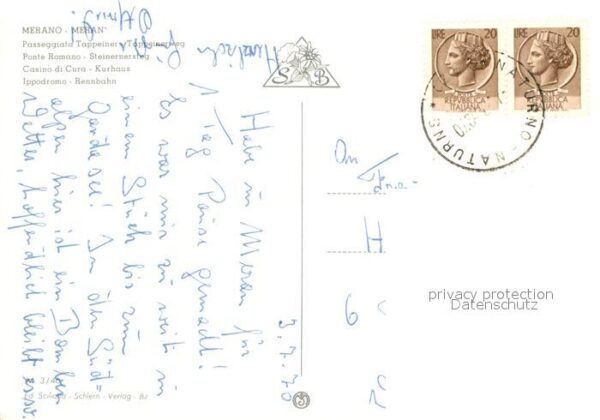 MERANO - MERAN
Passeggiata Tappeiner - Tappeinerweg
Ponte Romano - Steinernersteg
Casino di Cura - Kurhaus
Ippodromo - Rennbahn
S B
LIRE 20
REPUBBLICA
ITALIANA
LIRE 20
REPUBBLICA
ITALIANA
NATURNO - NATURNS
3.7.70
Habe in Meran für
1 Tag Pause gemacht!
Es war mir zu weit in
einem Stück bis zum
Gardasee! In den Süd-
alpen hier ist ein Bomben
Wetter, hoffendlich bleibt es so
Herzlich
An
H
6
privacy protection
Datenschutz
- Schlern - Verlag - Bz